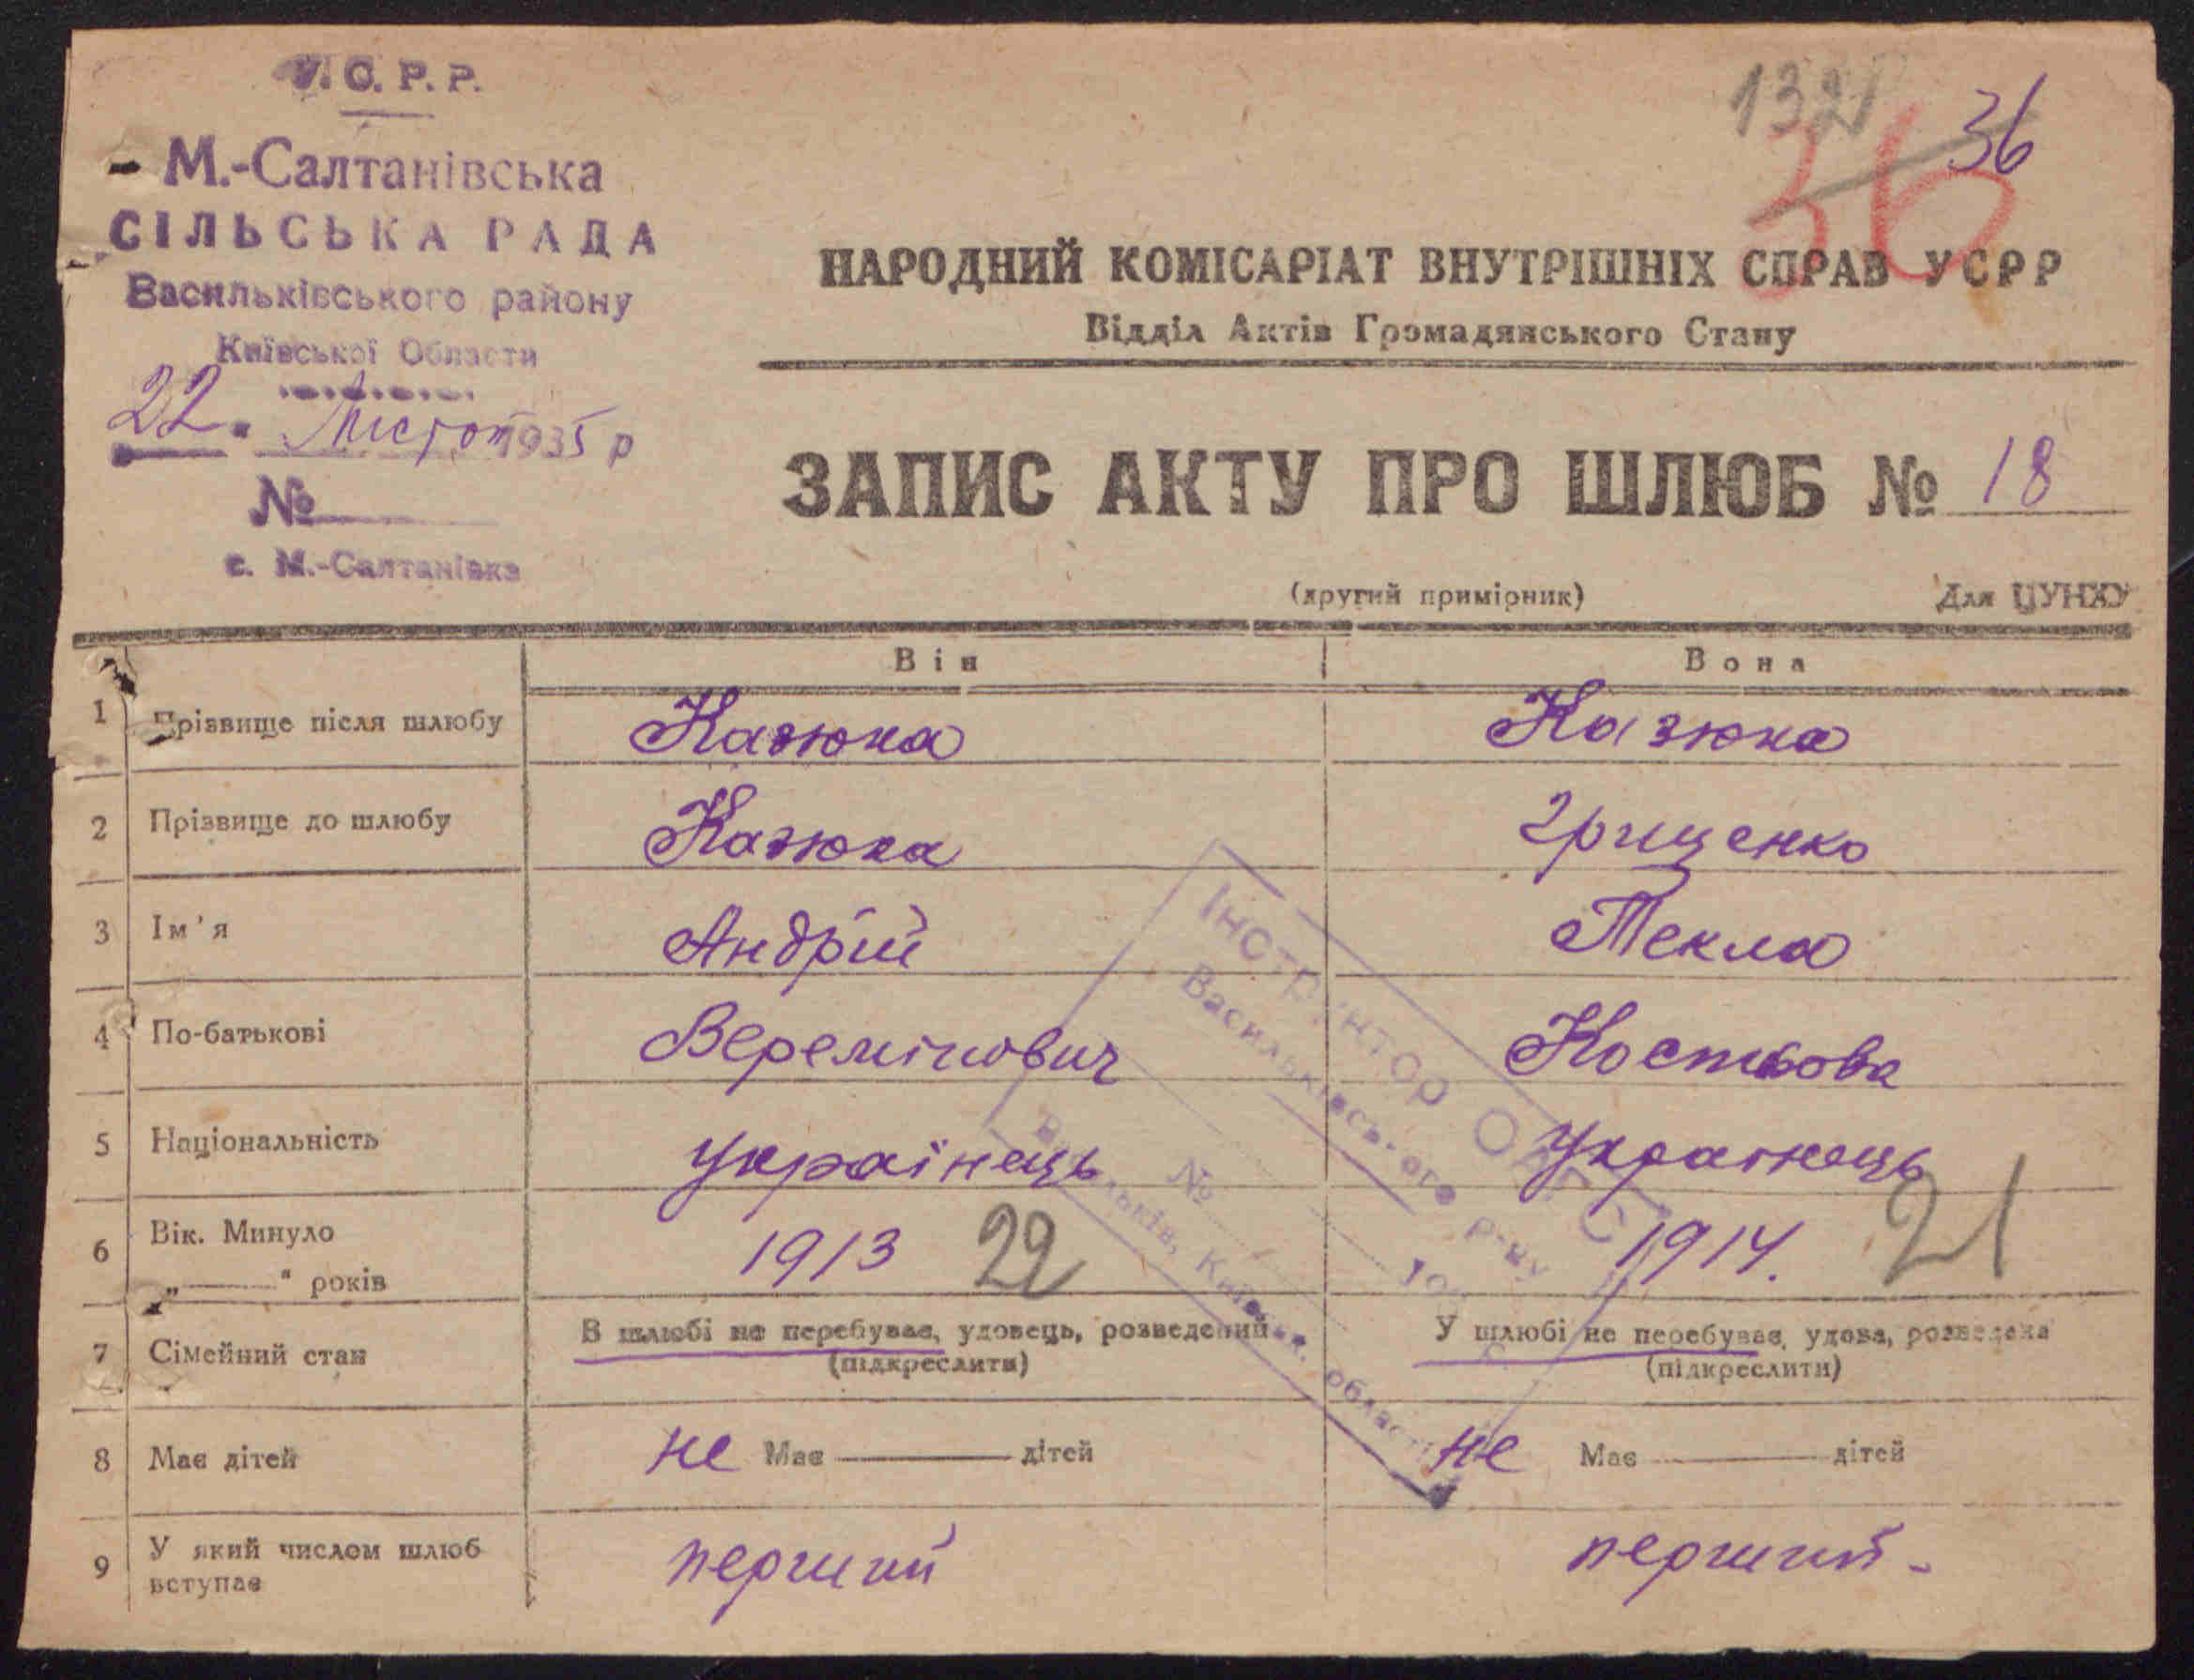 У.С.Р.Р.
М.-Салтанівська
СІЛЬСЬКА РАДА
Васильківського району
Київської Области
22. Листоп 1935 р
№
с. М.-Салтанівка
132
36
36
НАРОДНИЙ КОМІСАРІАТ ВНУТРІШНІХ СПРАВ УСРР
Відділ Актів Громадянського Стану
ЗАПИС АКТУ ПРО ШЛЮБ № 18
(другий примірник) Для ЦУНХУ
Він Вона
1 Прізвище після шлюбу Казюка Казюка
2 Прізвище до шлюбу Казюка Грищенко
3 Ім'я Андрій Текла
4 По-батькові Веремійович Костьова
5 Національність Українець Українець
6 Вік. Минуло „——" років 1913 22 1914. 21
7 Сімейний стан В шлюбі не перебуває, удовець, розведений (підкреслити) У шлюбі не перебуває, удова, розведена (підкреслити)
8 Має дітей не Має —— дітей не Має —— дітей
9 У який числом шлюб вступає перший перший -
Інструктор
Васильківського р-ну
№
Васильків, Київськ. області